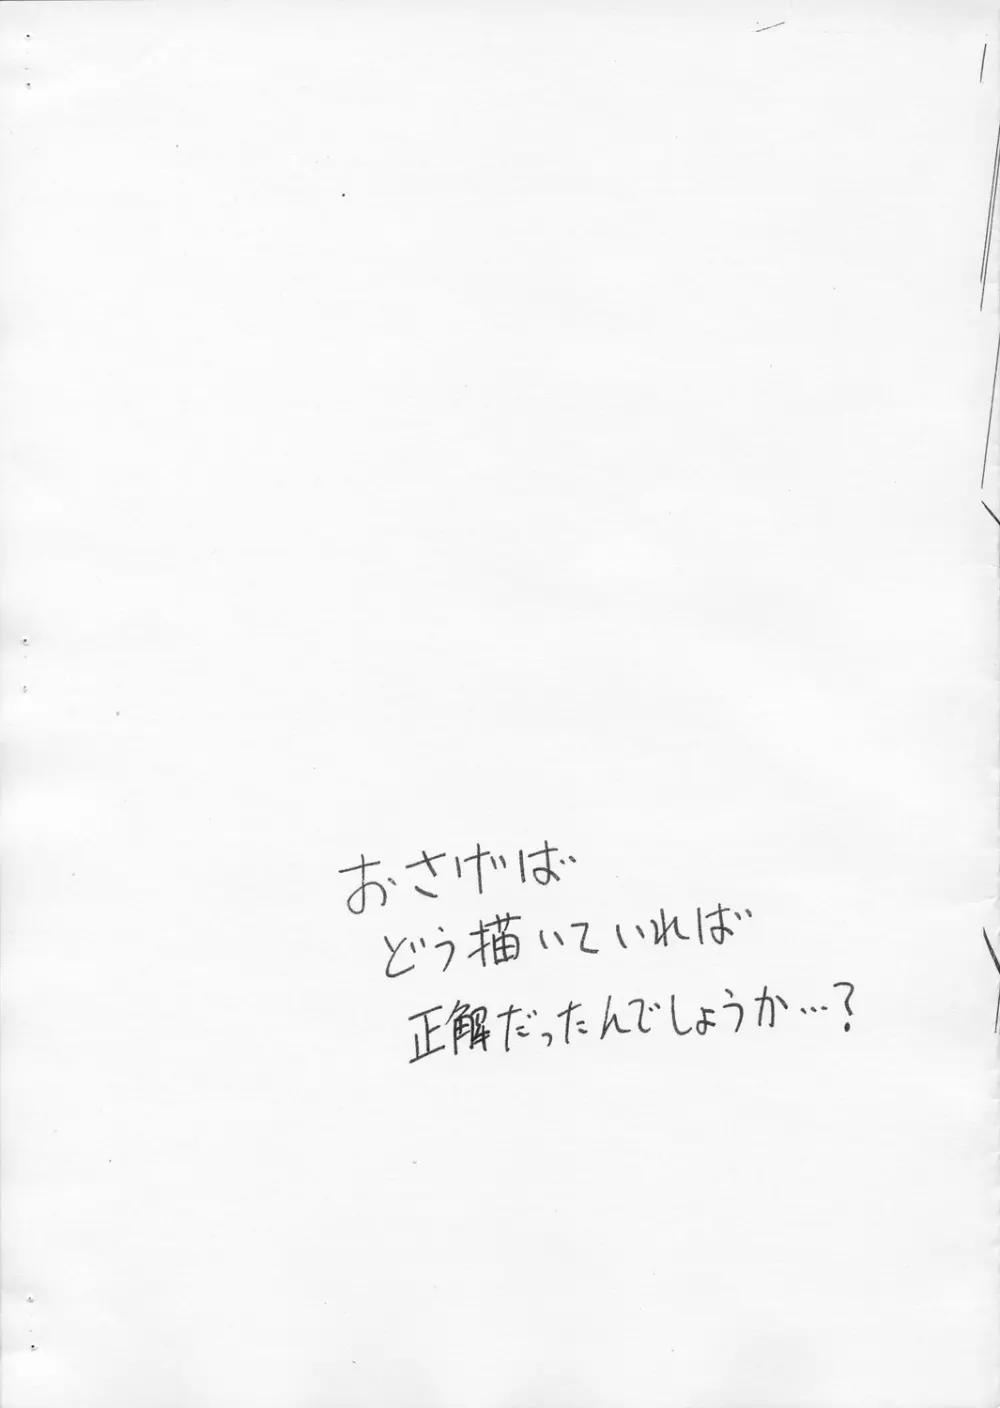 おさげは゛
どう描いていれば
正解だったんでしょうか…?